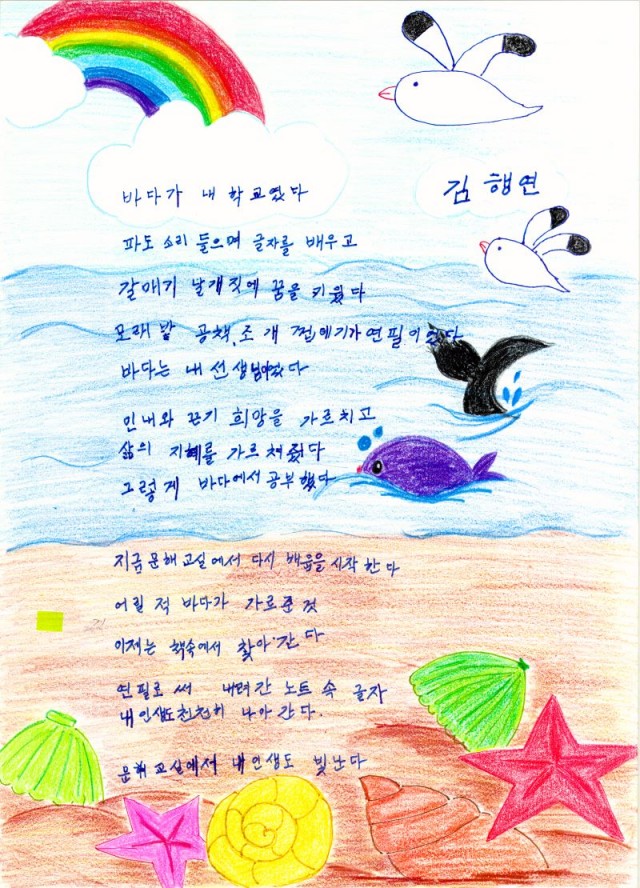 바다가 내 학교였다
김행연
파도 소리 들으며 글자를 배우고
갈매기 날개짓에 꿈을 키웠다
모래밭 공책, 조개 껍데기가 연필이 었다
바다는 내 선생님이었다
인내와 끈기 희망을 가르치고
삶의 지혜를 가르쳐 줬다
그렇게 바다에서 공부했다
지금 문해 교실에서 다시 배움을 시작 한다
어릴 적 바다가 가르준 것
이제는 책속에서 찾아 간다
연필로 써 내려간 노트 속 글자
내 인생도 천천히 나아 간다.
문해 교실에서 내 인생도 빛난다